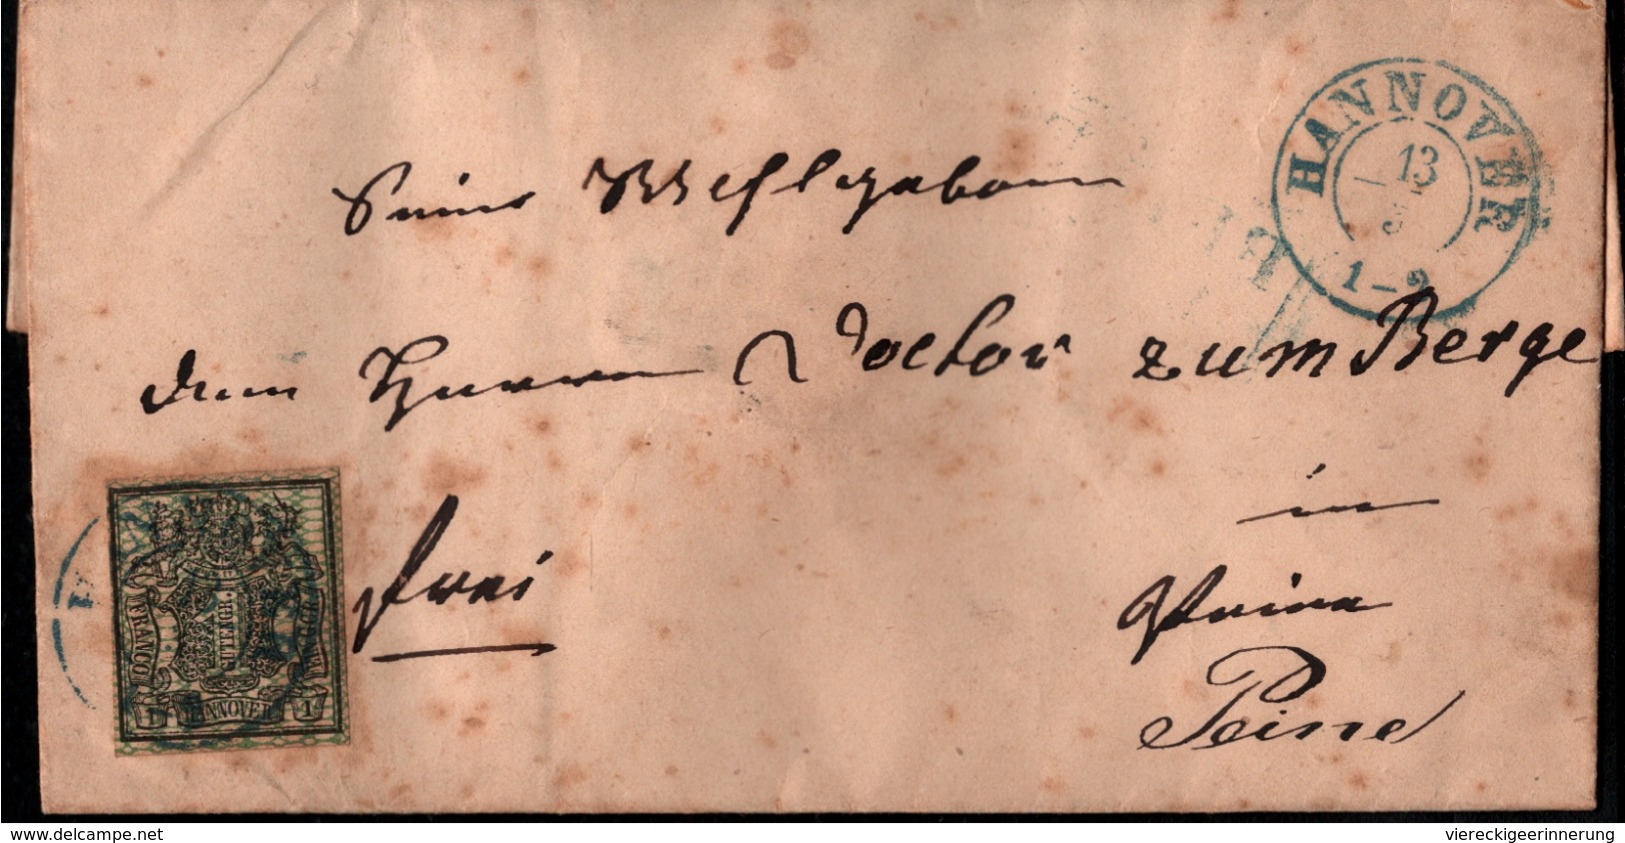 HANNOVER
13
1-2
Seiner Wohlgeboren
dem Herrn Doctor zum Berge
in
frei
Peine
Peine
FRANCO
1 GUTENGR.
1 HANNOVER 1
www.delcampe.net
viereckigeerinnerung